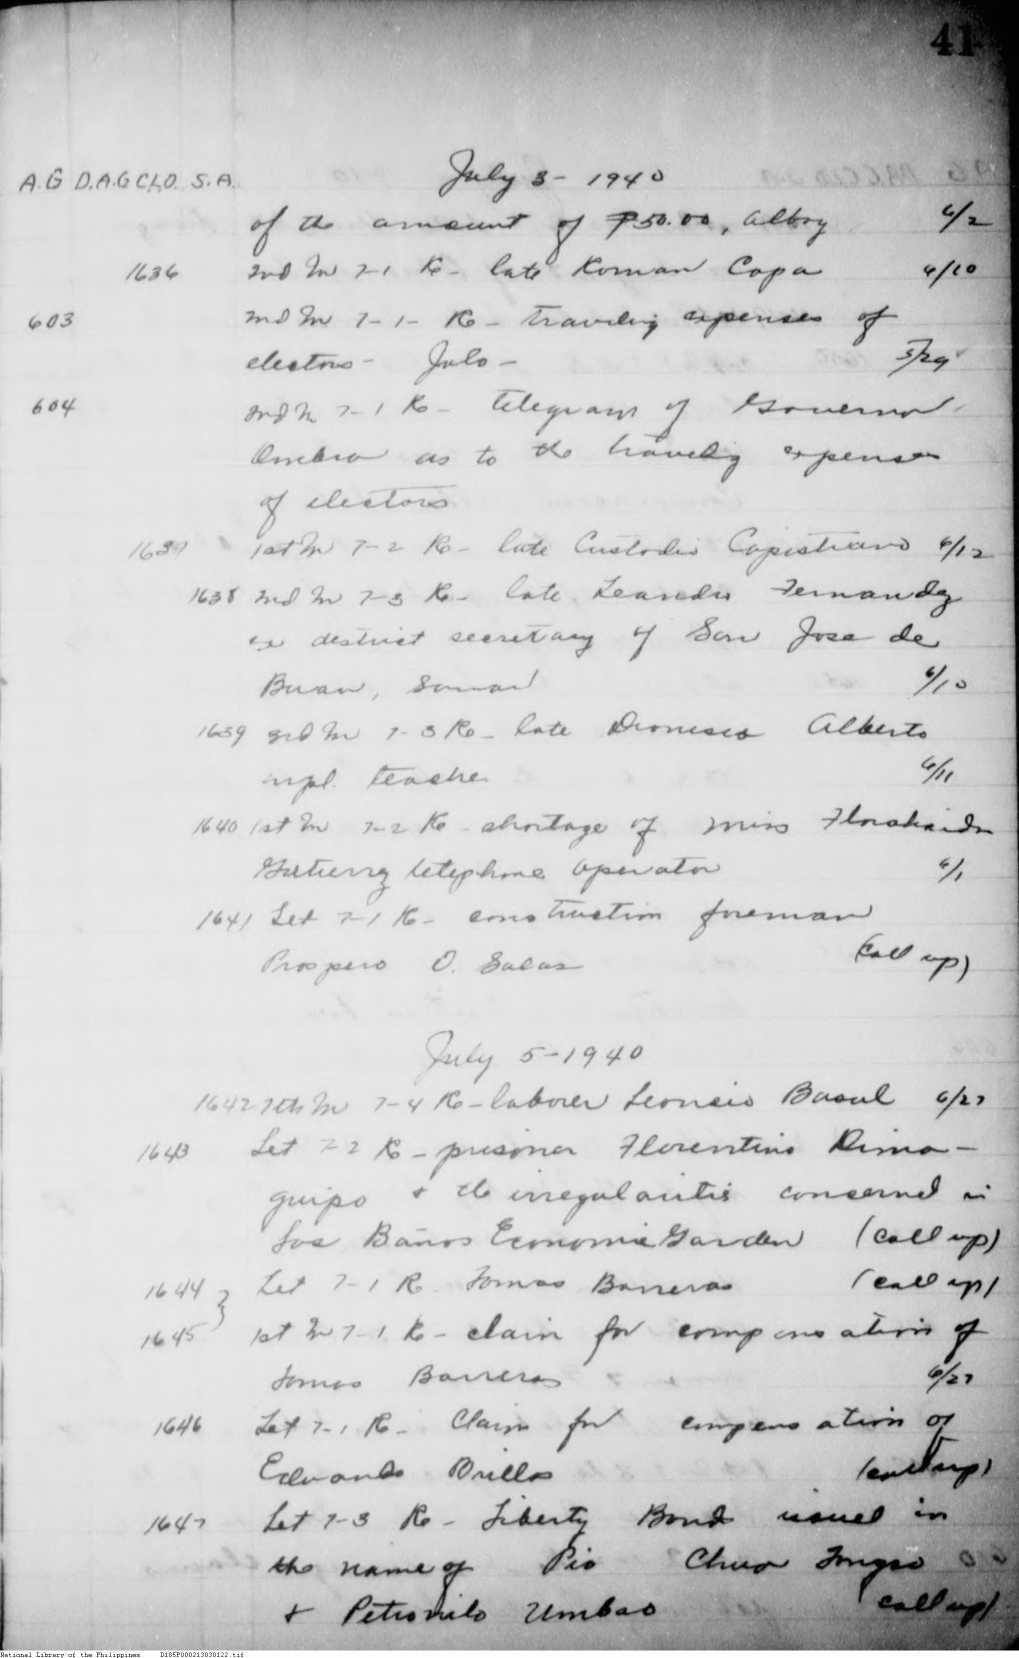 41
A.G D.A.G CLO. S.A. July 3 - 1940
of the amount of ₱50.00, Albay 6/2
1636 2nd In 7-1 Re - late Roman Capa 6/10
603 2nd In 7-1- Re - traveling expenses of
electors - Jolo - 5/29
604 2nd In 7-1 Re - telegram of Governor
as to the traveling expenses
of electors
1637 1st In 7-2 Re - late Custodio Capistrano 6/12
1638 2nd In 7-3 Re - late Leandro Fernandez
ex district secretary of San Jose de
Buan, Samar 6/10
1639 3rd In 7-3 Re - late Dionisio Alberto
mpl. teacher 6/11
1640 1st In 7-2 Re - shortage of Miss
Gutierrez telephone operator 6/1
1641 Let 7-1 Re - construction foreman
Prospero O. Salas (call up)
July 5 - 1940
1642 7th In 7-4 Re - laborer Leoncio Basul 6/27
1643 Let 7-2 Re - prisoner Florentino Dima-
guipo & the irregularities concerned in
Los Baños Economic Garden (call up)
1644 } Let 7-1 Re Tomas Barreras (call up)
1645 1st In 7-1 Re - claim for compensation of
Tomas Barreras 6/27
1646 Let 7-1 Re - Claim for compensation of
Eduardo Brillos (call up)
1647 Let 7-3 Re - Liberty Bond issued in
the name of Pio Chua
& Petronilo Umbao (call up)
National Library of the Philippines D185P000213030122.tif